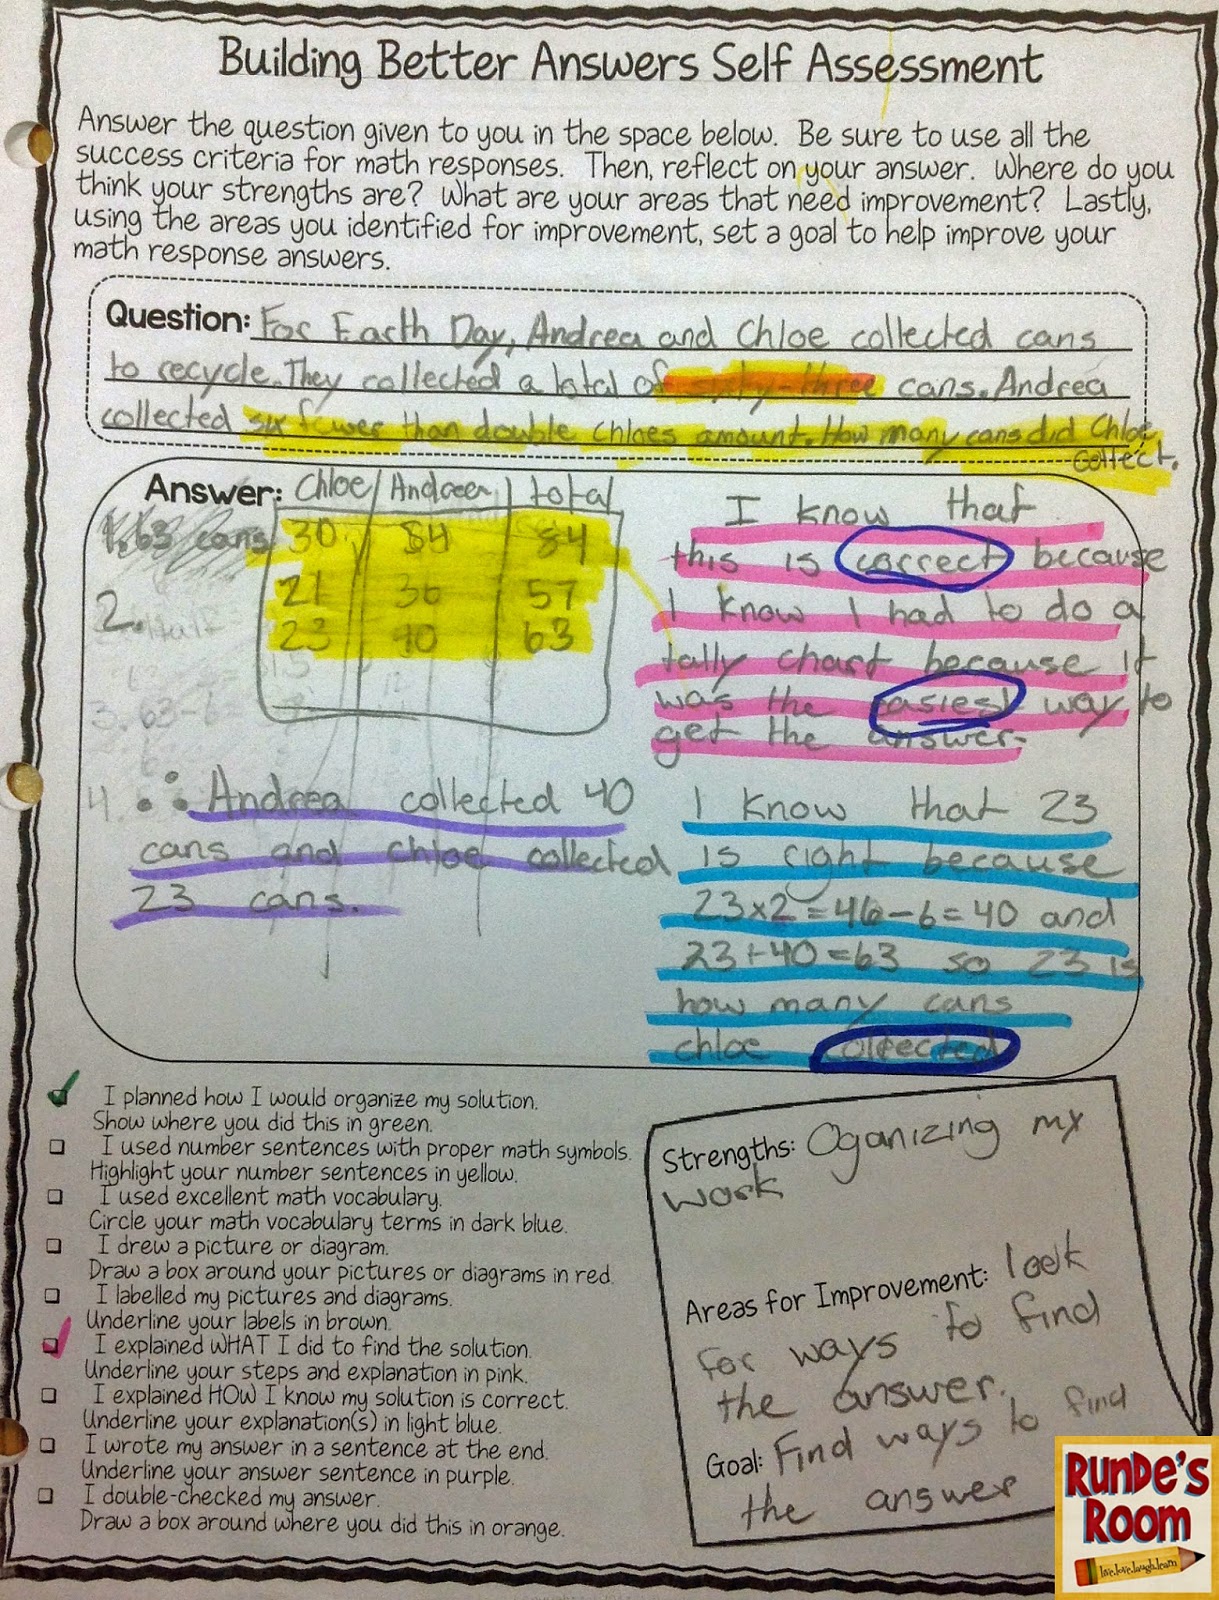 Building Better Answers Self Assessment
Answer the question given to you in the space below. Be sure to use all the
success criteria for math responses. Then, reflect on your answer. Where do you
think your strengths are? What are your areas that need improvement? Lastly,
using the areas you identified for improvement, set a goal to help improve your
math response answers.
Question: For Earth Day, Andrea and Chloe collected cans
to recycle. They collected a total of sixty-three cans. Andrea
collected six fewer than double Chloes amount. How many cans did Chloe
collect.
Answer: Chloe Andrea total
1. 63 cans 30 84
21 36 57
2. Half 23 40 63
3. 63-6
4. ∴ Andrea collected 40
cans and chloe collected
23 cans.
I know that
this is correct because
I know I had to do a
tally chart because it
was the easiest way to
get the answer.
I know that 23
is right because
23x2=46-6=40 and
23+40=63 so 23 is
how many cans
chloe collected
I planned how I would organize my solution.
Show where you did this in green.
I used number sentences with proper math symbols.
Highlight your number sentences in yellow.
I used excellent math vocabulary.
Circle your math vocabulary terms in dark blue.
I drew a picture or diagram.
Draw a box around your pictures or diagrams in red.
I labelled my pictures and diagrams.
Underline your labels in brown.
I explained WHAT I did to find the solution.
Underline your steps and explanation in pink.
I explained HOW I know my solution is correct.
Underline your explanation(s) in light blue.
I wrote my answer in a sentence at the end.
Underline your answer sentence in purple.
I double-checked my answer.
Draw a box around where you did this in orange.
Strengths: Oganizing my
work
Areas for Improvement: look
for ways to find
the answer.
Goal: Find ways to find
the answer
RUNDE'S
ROOM
live.love.laugh.learn